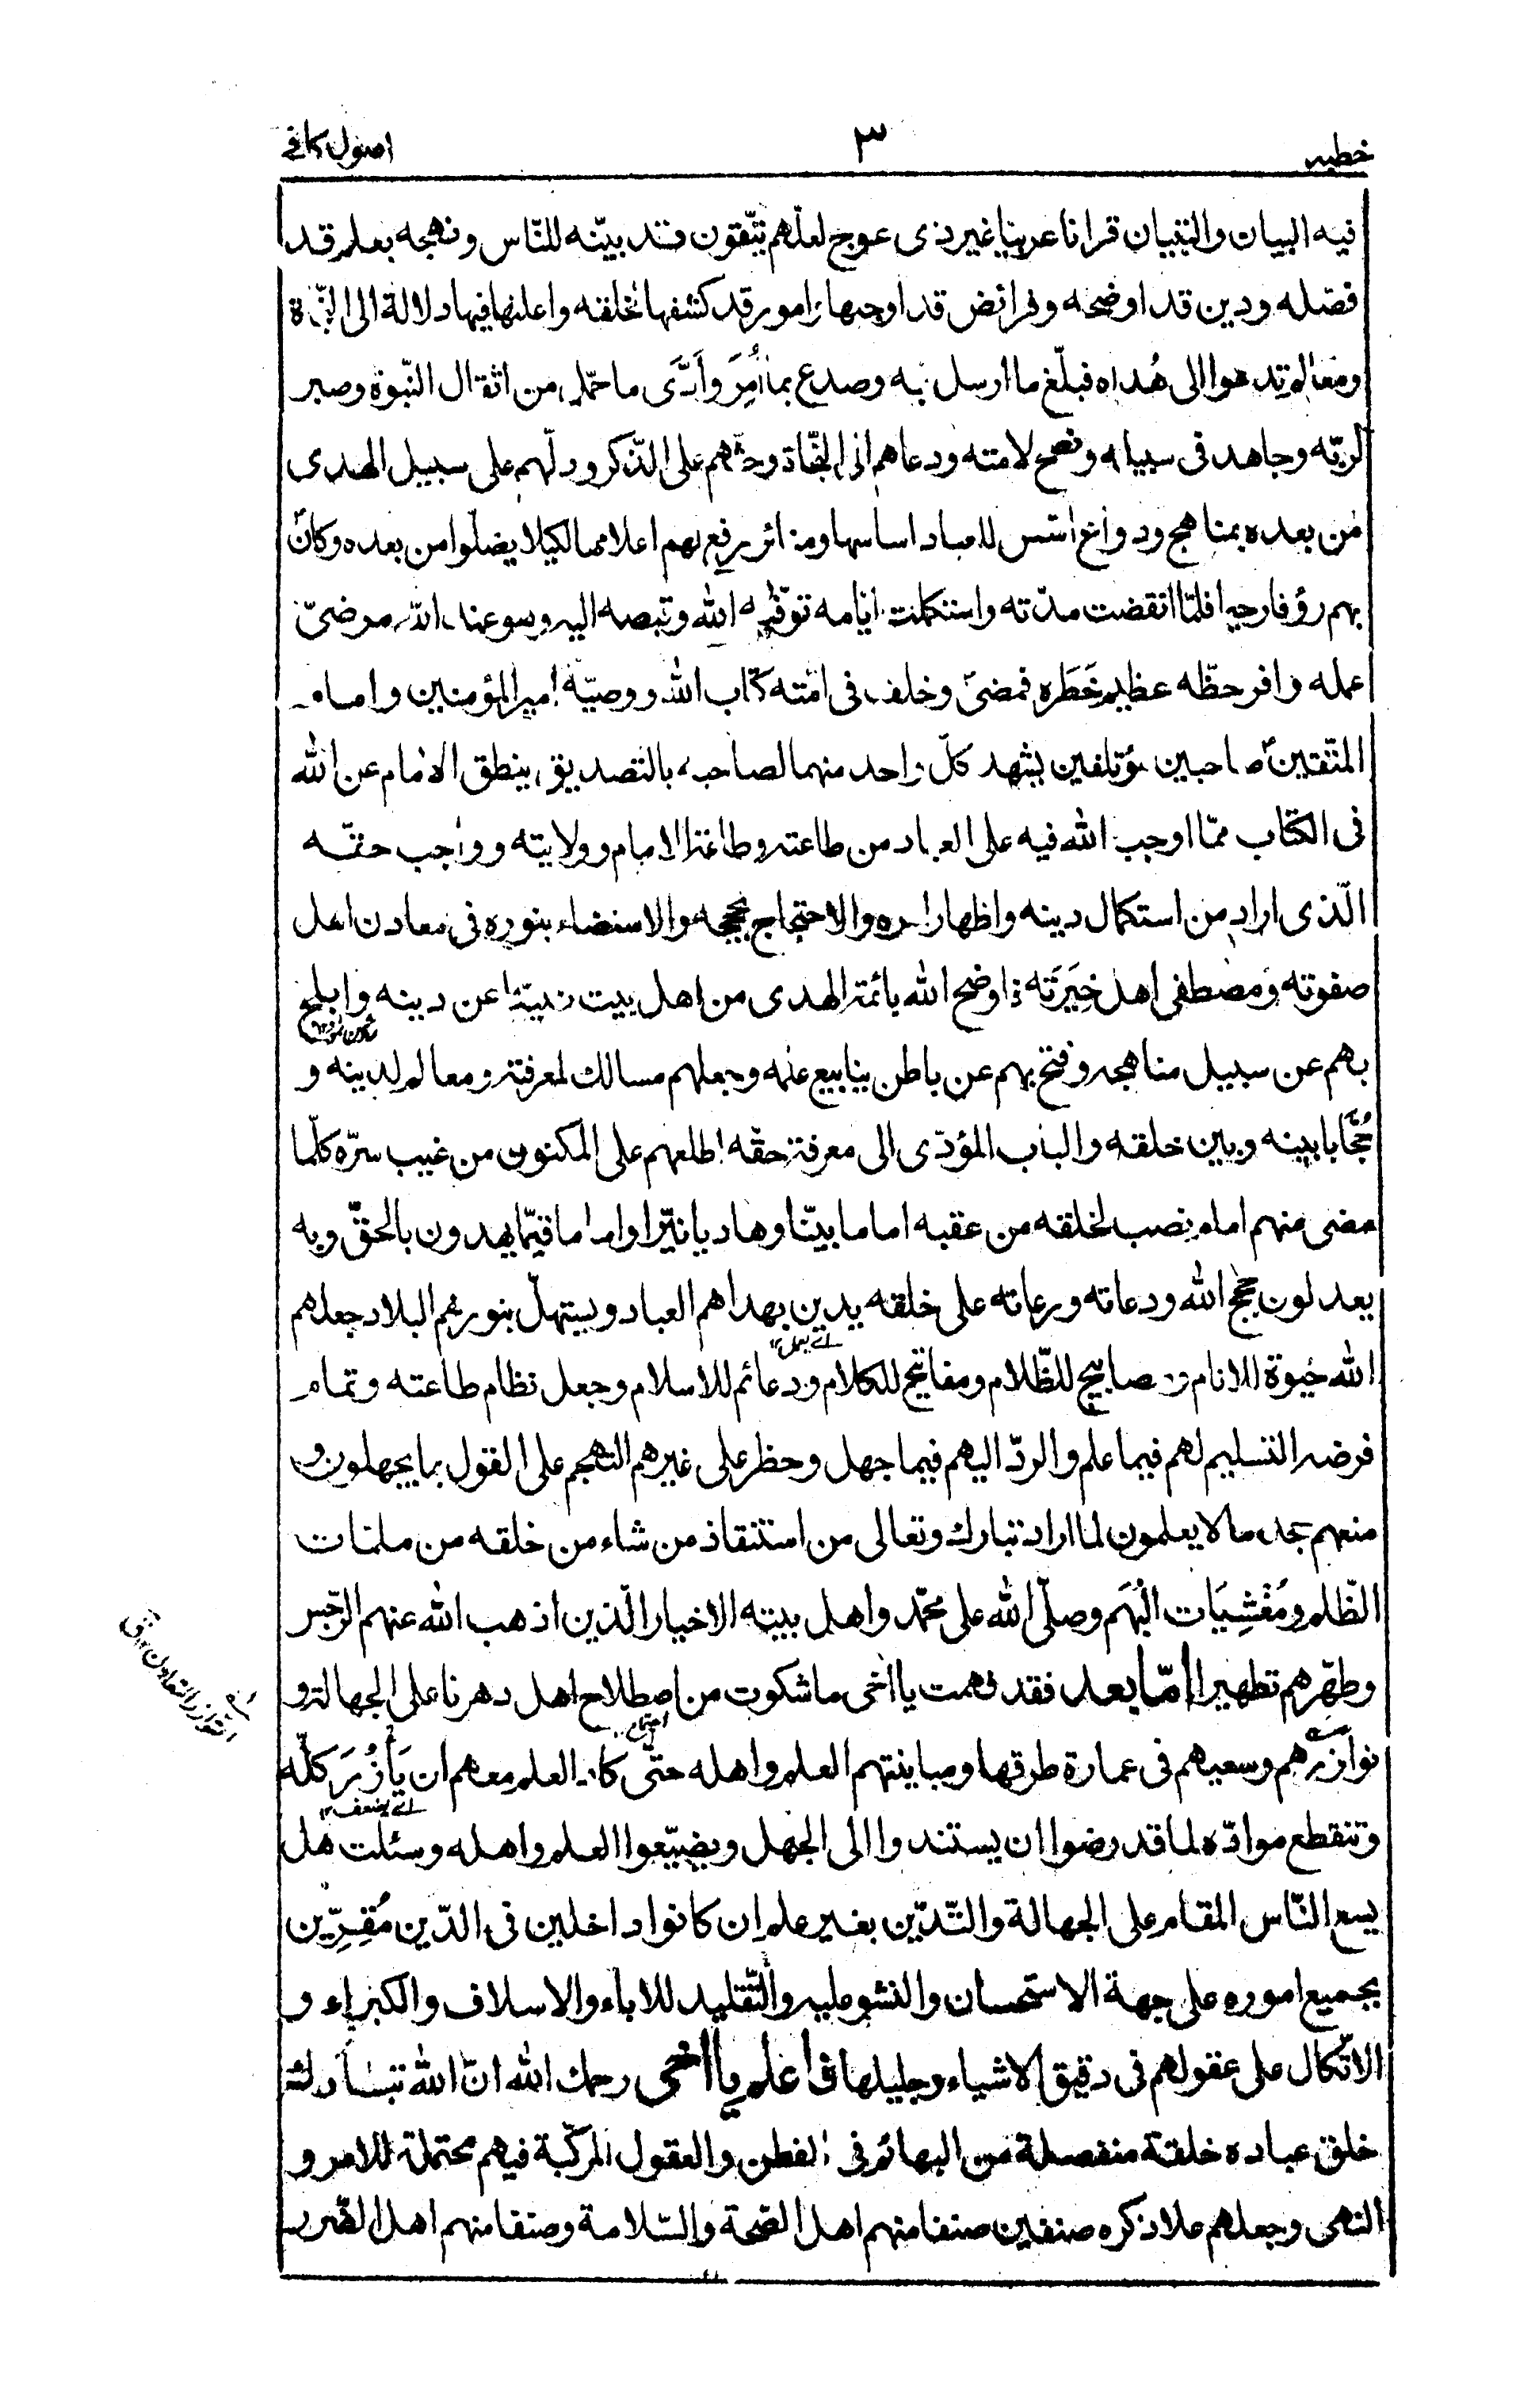 خطبه ٣ اصول كافے
فيه البيان والتبيان قرانا عربيا غير ذى عوج لعلّهم يتّقون قد بيّنه للنّاس ونهجه بعلم قد
فصّله ودين قد اوضحه وفرائض قد اوجبها وامور قد كشفها لخلقه واعلنها فيها دلالة الى النّجاة
ومعالم تدعوا الى هُداه فبلّغ ما ارسل به وصدع بما اُمِرَ وَاَدَّى ما حمّل من اثقال النّبوة وصبر
لربّه وجاهد فى سبيله ونصح لامته ودعاهم الى النجّاة وحثّهم على الذّكر ودلّهم على سبيل الهدى
من بعده بمناهج ودواع اسّس للعباد اساسها ومنائر رفع لهم اعلامها لكيلا يضلّوا من بعده وكان
بهم رؤفا رحيما فلمّا انقضت مدّته واستكملت ايّامه توفّيه الله وقبضه اليه وهو عند الله مرضىّ
عمله وافر حظّه عظيم خَطَره فمضىٰ وخلف فى امّته كتاب الله ووصيّه امير المؤمنين وامام
المتّقين صاحبين مؤتلفين يشهد كلّ واحد منهما لصاحبه بالتصديق ينطق الامام عن الله
فى الكتاب ممّا اوجب الله فيه على العباد من طاعته وطاعة الامام وولايته وواجب حقّه
الّذى اراد من استكمال دينه واظهار امره والاحتجاج بحججه والاستضاء بنوره فى معادن اهل
صفوته ومصطفى اهل خِيَرَته فاوضح الله بائمّة الهدى من اهل بيت نبيّنا عن دينه وابلج
بهم عن سبيل مناهجه وفتح بهم عن باطن ينابيع علمه وجعلهم مسالك لمعرفته ومعالم لدينه و
حُجّابا بينه وبين خلقه والباب المؤدّى الى معرفة حقّه اطلعهم على المكنون من غيب سرّه كلّما
مضى منهم امام نصب لخلقه من عقبه اماما بيّنا وهاديا نيّرا واماما قيّما يهدون بالحقّ وبه
يعدلون حجج الله ودعاته ورعاته على خلقه يدين بهداهم العباد ويستهلّ بنورهم البلاد جعلهم
الله حيوة للانام ومصابيح للظّلام ومفاتيح للكلام ودعائم للاسلام وجعل نظام طاعته وتمام
فرضه التسليم لهم فيما علم والردّ اليهم فيما جهل وحظر على غيرهم التهجم على القول بما يجهلون و
منعهم جحد ما لا يعلمون لما اراد تبارك وتعالى من استنقاذ من شاء من خلقه من ملمّات
الظّلم ومُغْشِيَات البُهَم وصلّى الله على محمّد واهل بيته الاخيار الّذين اذهب الله عنهم الرّجس
وطهّرهم تطهيرا امّا بعد فقد فهمت يا اخى ما شكوت من اصطلاح اهل دهرنا على الجهالة و
توازرهم وسعيهم فى عمارة طرقها ومباينتهم العلم واهله حتّى كاد العلم معهم ان يَأْزُرَ كلّه
اے يضعف ١٢
وتنقطع موادّه لما قد رضوا ان يستندوا الى الجهل ويضيّعوا العلم واهله وسئلت هل
يسع النّاس المقام على الجهالة والتّديّن بغير علم ان كانوا داخلين فى الدّين مُقِرِّين
بجميع اموره على جهة الاستحسان والنشو عليه والتّقليد للاباء والاسلاف والكبراء و
الاتّكال على عقولهم فى دقيق الاشياء وجليلها فاعلم يا اخى رحمك الله انّ الله تبارك
خلق عباده خلقة منفصلة من البهائم فى الفطن والعقول المركّبة فيهم محتملة للامر و
النهى وجعلهم جل ذكره صنفين صنفا منهم اهل الصّحة والسّلامة وصنفا منهم اهل الضّرر